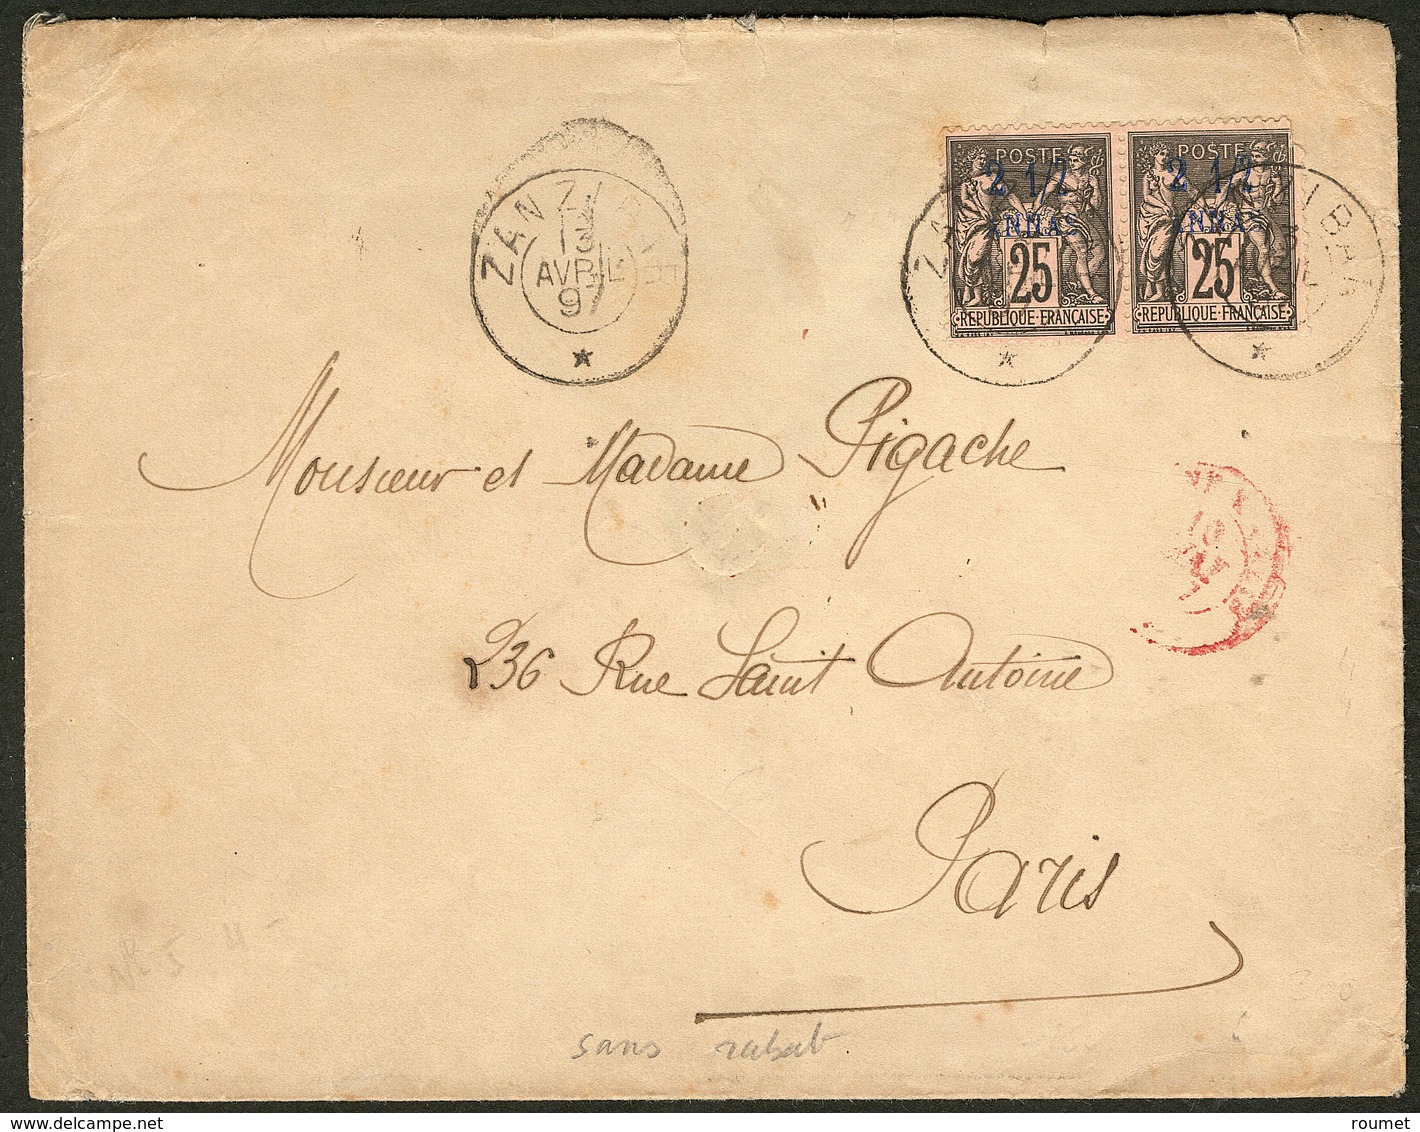 ZANZIBAR
13
AVRIL
97
POSTE
2 1/2
ANNAS
25
REPUBLIQUE FRANÇAISE
POSTE
2 1/2
ANNAS
25
REPUBLIQUE FRANÇAISE
Monsieur et Madame Pigache
236 Rue Saint Antoine
Paris
sans rabat
roumet